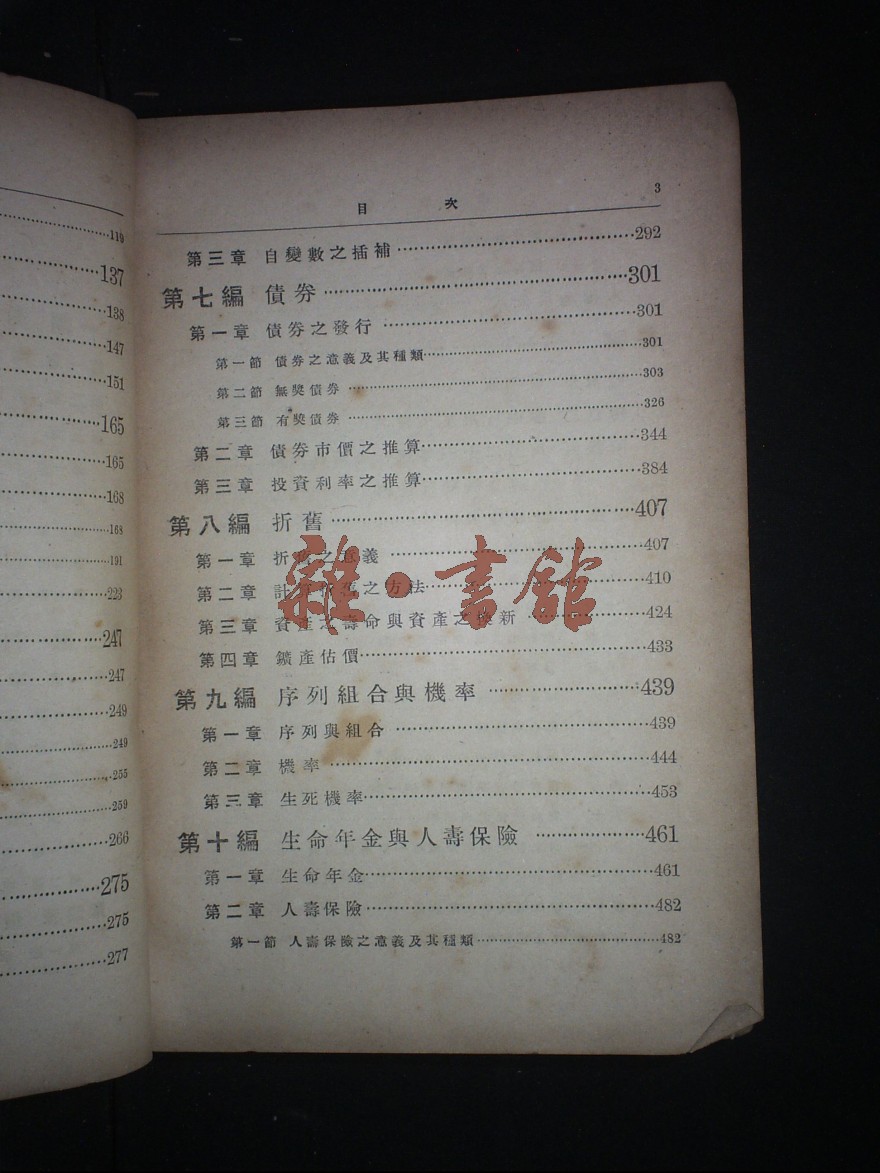 119
137
138
147
151
165
165
168
168
191
223
247
247
249
249
255
259
266
275
275
277
目 次 3
第三章 自變數之插補……292
第七編 債券……301
第一章 債券之發行……301
第一節 債券之意義及其種類……301
第二節 無獎債券……303
第三節 有獎債券……326
第二章 債券市價之推算……344
第三章 投資利率之推算……384
第八編 折舊……407
第一章 折舊之意義……407
第二章 計算折舊之方法……410
第三章 資產之壽命與資產之換新……424
第四章 鑛產估價……433
第九編 序列組合與機率……439
第一章 序列與組合……439
第二章 機率……444
第三章 生死機率……453
第十編 生命年金與人壽保險……461
第一章 生命年金……461
第二章 人壽保險……482
第一節 人壽保險之意義及其種類……482
雜·書館